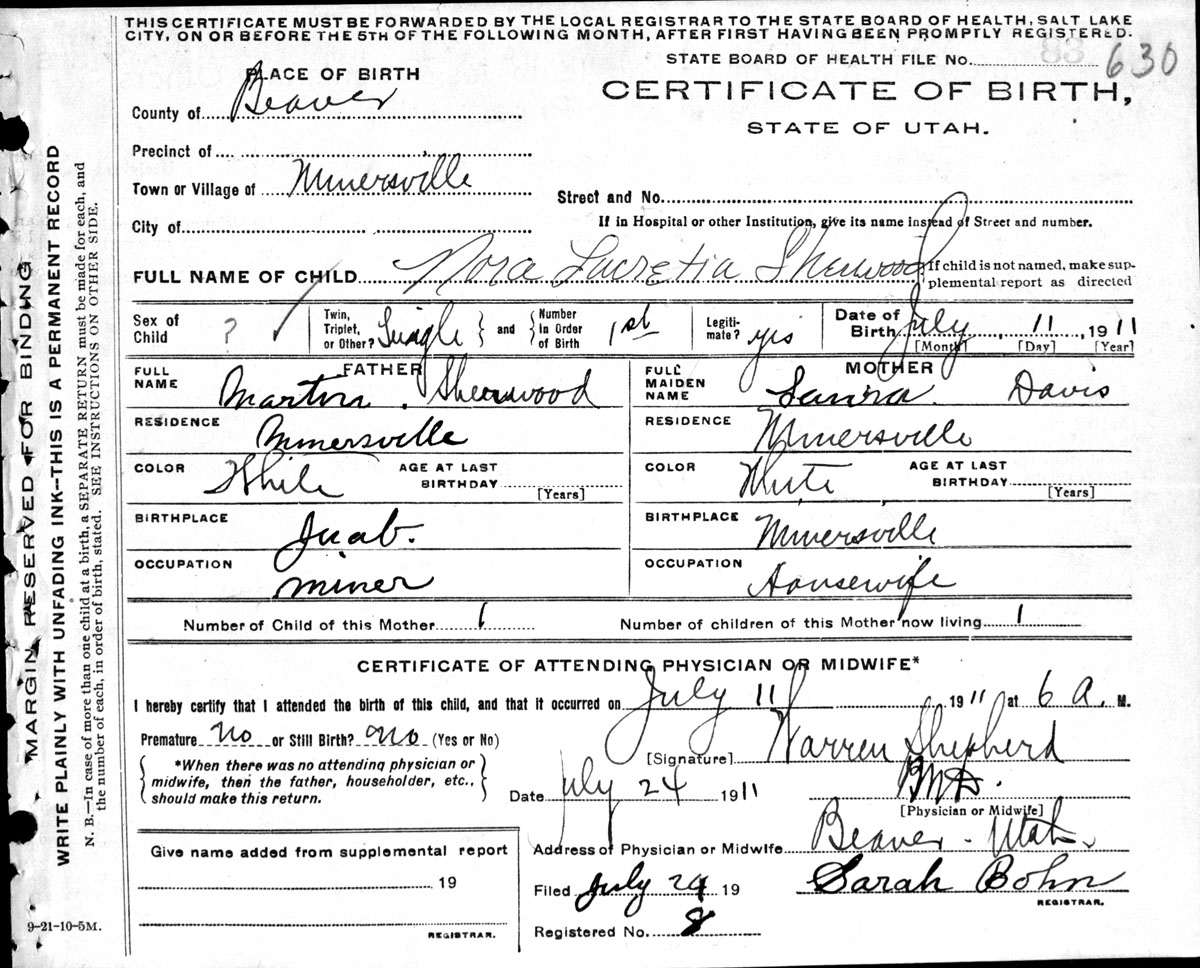 THIS CERTIFICATE MUST BE FORWARDED BY THE LOCAL REGISTRAR TO THE STATE BOARD OF HEALTH, SALT LAKE
CITY, ON OR BEFORE THE 5TH OF THE FOLLOWING MONTH, AFTER FIRST HAVING BEEN PROMPTLY REGISTERED.
STATE BOARD OF HEALTH FILE No. 630
PLACE OF BIRTH
CERTIFICATE OF BIRTH,
STATE OF UTAH.
County of Beaver
Precinct of
Town or Village of Minersville
Street and No.
City of
If in Hospital or other Institution, give its name instead of Street and number.
FULL NAME OF CHILD Nora Lucretia Sherwood
If child is not named, make sup-
plemental report as directed
Sex of
Child ?
Twin,
Triplet,
or Other? Single
and
Number
in Order
of Birth 1st
Legiti-
mate? yes
Date of
Birth July 11, 1911
[Month] [Day] [Year]
FATHER
FULL
NAME
Martin Sherwood
MOTHER
FULL
MAIDEN
NAME
Laura Davis
RESIDENCE
Minersville
RESIDENCE
Minersville
COLOR
White
AGE AT LAST
BIRTHDAY
[Years]
COLOR
White
AGE AT LAST
BIRTHDAY
[Years]
BIRTHPLACE
Juab.
BIRTHPLACE
Minersville
OCCUPATION
miner
OCCUPATION
Housewife
Number of Child of this Mother 1
Number of children of this Mother now living 1
CERTIFICATE OF ATTENDING PHYSICIAN OR MIDWIFE*
I hereby certify that I attended the birth of this child, and that it occurred on July 11 1911 at 6 a. M.
Premature no or Still Birth? no (Yes or No)
[Signature] Warren Shepherd
*When there was no attending physician or
midwife, then the father, householder, etc.,
should make this return.
M.D.
Date July 24 1911
[Physician or Midwife]
Address of Physician or Midwife Beaver - Utah.
Give name added from supplemental report
19
REGISTRAR.
Filed July 24 19
Sarah Bohn
REGISTRAR.
Registered No. 8
9-21-10-5M.
MARGIN RESERVED FOR BINDING
WRITE PLAINLY WITH UNFADING INK--THIS IS A PERMANENT RECORD
N. B.—In case of more than one child at a birth, a SEPARATE RETURN must be made for each, and
the number of each, in order of birth, stated. SEE INSTRUCTIONS ON OTHER SIDE.